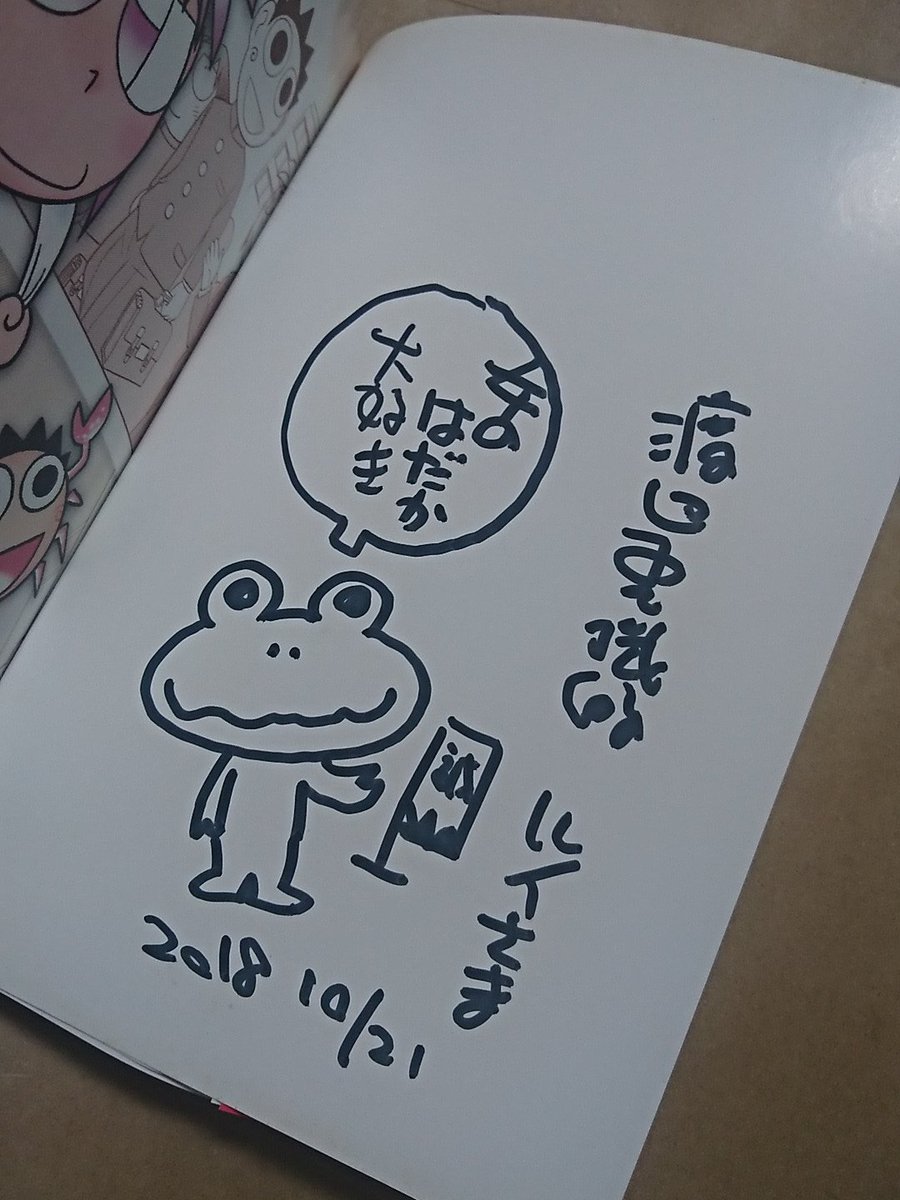 渡辺電機(株)
ルイさま
女の
はだか
大好き
2018 10/21